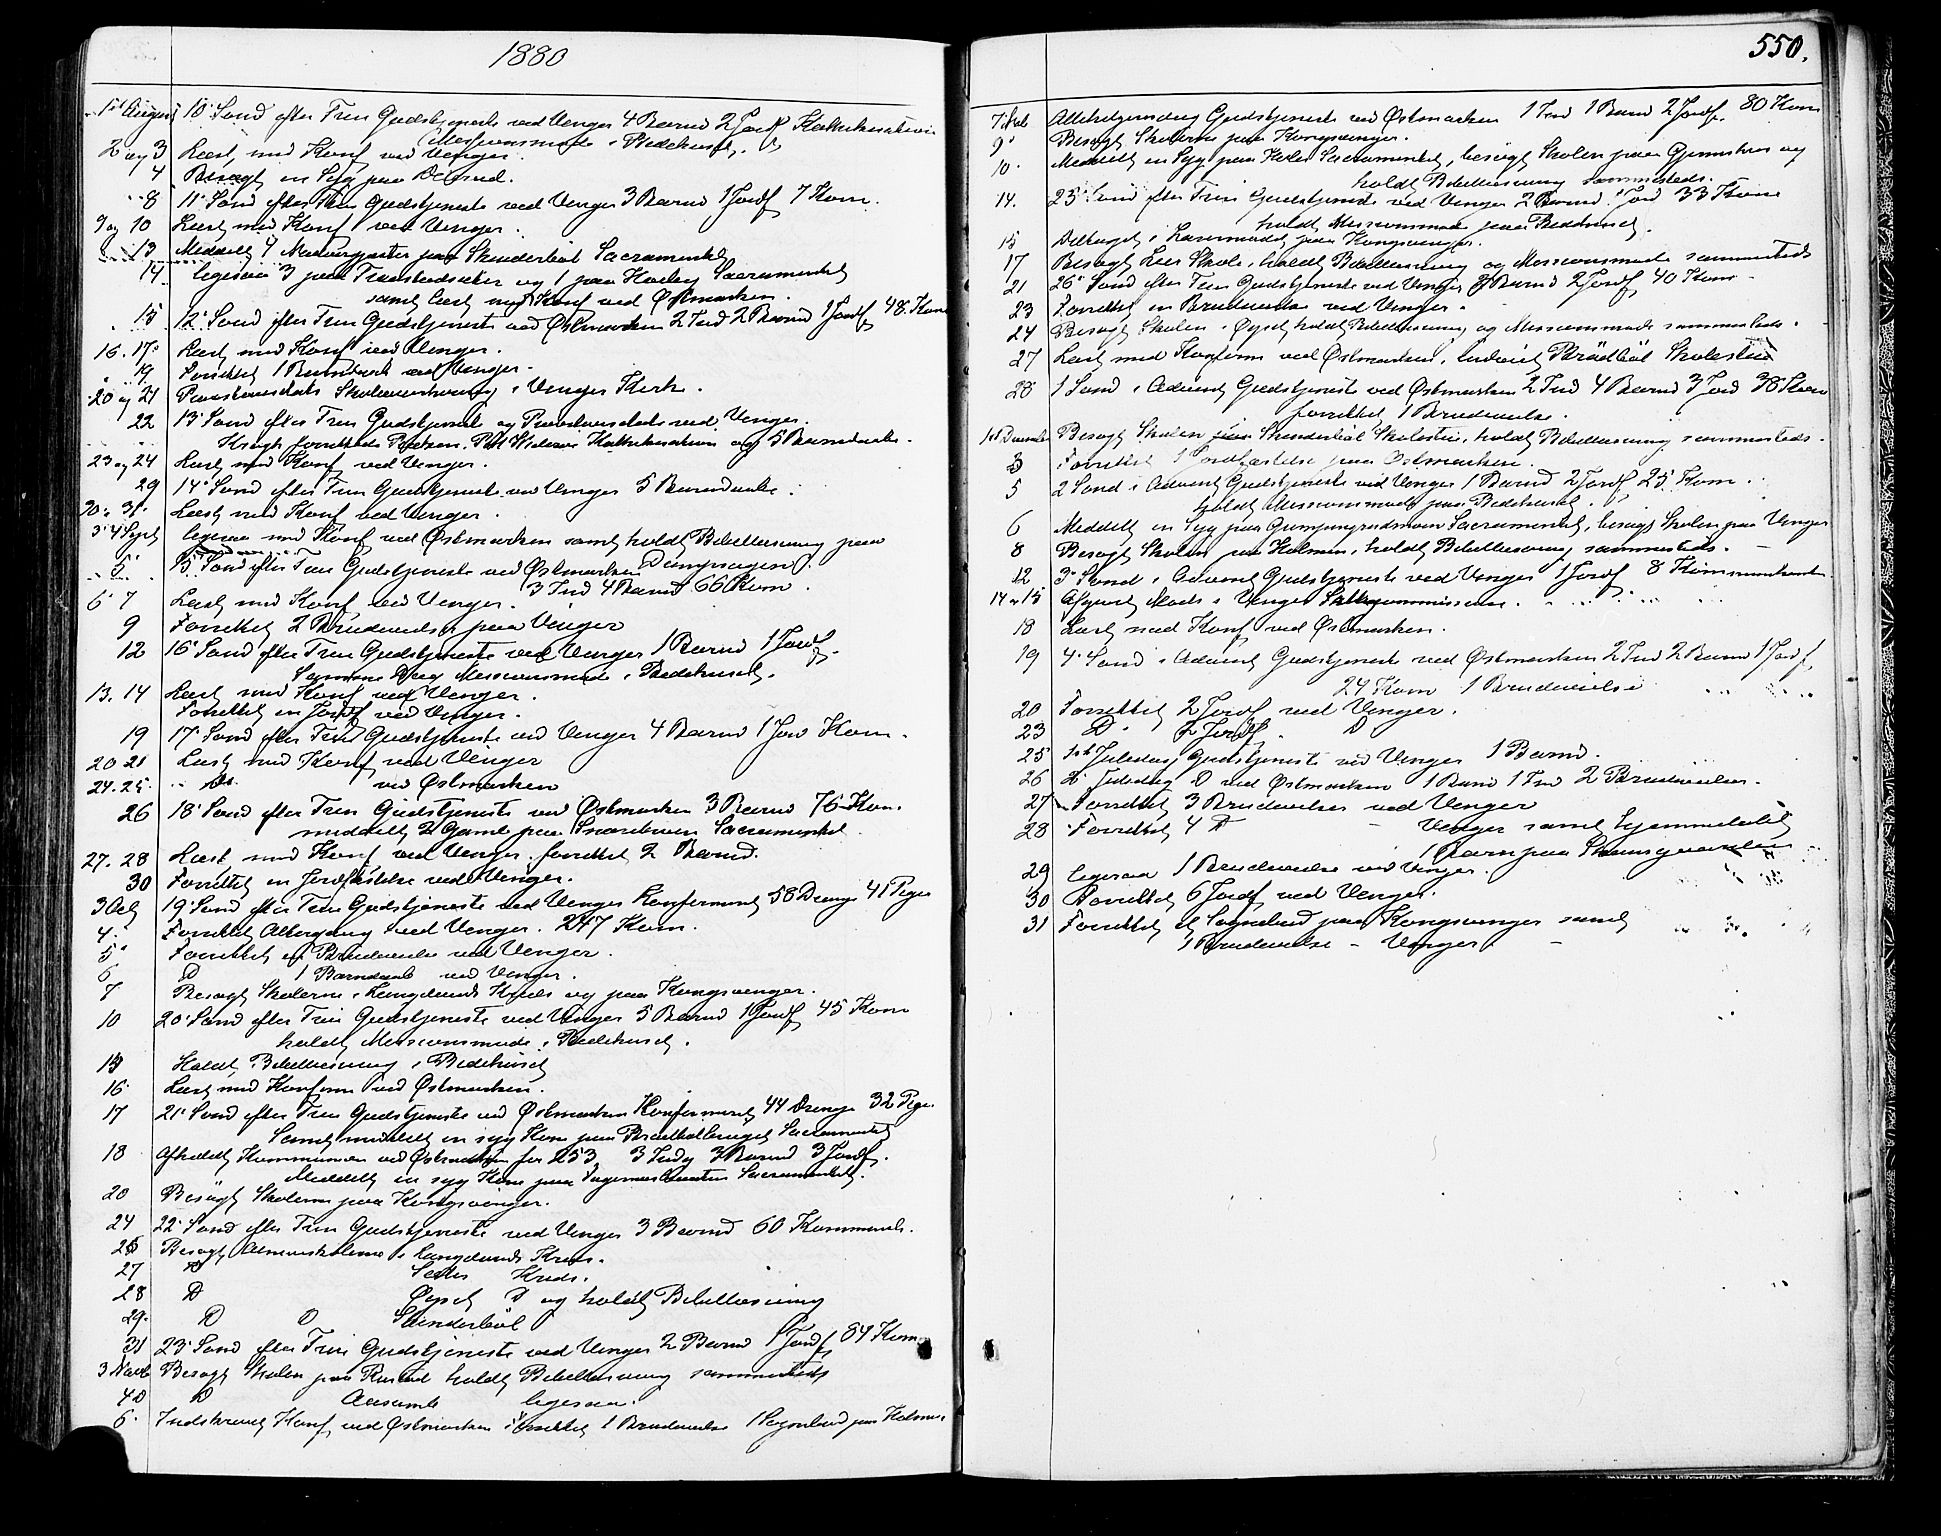 1880
1st August 10' Sønd efter Trin Gudstjeneste ved Vinger 4 Barnd 2 Jordf Kathekisation
Missionsmøde i Bedehuset.
2 og 3 Læst med Konf ved Vinger.
4 Besøgt en Syg paa
8 11' Sønd efter Trin Gudstjeneste ved Vinger 3 Barnd 1 Jordf 7 Kom.
9 og 10 Læst med Konf ved Vinger.
13 Meddelt 4 paa Skinderbøl Sacramentet
14 ligesaa 3 paa og 1 paa Sacramentet
samt læst med Konf ved Østmarken.
15 12' Sønd efter Trin Gudstjeneste ved Østmarken 2 Ind 2 Barnd 1 Jordf 48 Kom
16. 17. Læst med Konf ved Vinger.
19 Forrettet 1 Barndaab ved Vinger.
20 og 21 Skole i Vinger Kirke.
22 13' Sønd efter Trin Gudstjeneste og ved Vinger
forrettede Kathekisation og 5 Barndaabe.
23 og 24 Læst med Konf ved Vinger.
29 14' Sønd efter Trin Gudstjeneste ved Vinger 5 Barndaabe.
30. 31. Læst med Konf ved Vinger.
3' 4 Sept ligesaa med Konf ved Østmarken samt holdt Bibellæsning paa
5' 15' Sønd efter Trin Gudstjeneste ved Østmarken
3 Ind 4 Barnd 66 Kom.
6 7 Læst med Konf ved Vinger.
9 Forrettet 2 Brudevielser paa Vinger
12 16' Sønd efter Trin Gudstjeneste ved Vinger 1 Barnd 1 Jordf.
Samme Dag Missionsmøde i Bedehuset.
13. 14 Læst med Konf ved Vinger.
Forrettet en Jordf ved Vinger.
19 17' Sønd efter Trin Gudstjeneste ved Vinger 4 Barnd 1 Jor Kom.
20 21 Læst med Konf ved Vinger
24. 25. Do. ved Østmarken
26 18' Sønd efter Trin Gudstjeneste ved Østmarken 3 Barnd 76 Kom.
meddelt 2 Gamle paa Sacramentet.
27. 28 Læst med Konf ved Vinger. forrettet 2 Barnd.
30 Forrettet en Jordfæstelse ved Vinger.
3 Oct 19' Sønd efter Trin Gudstjeneste ved Vinger Konfirmeret 58 Drenge 41 Piger
4. Forrettet Altergang ved Vinger. 247 Kom.
5' Forrettet Brudevielse ved Vinger.
6 D 1 Barndaab ved Vinger.
7 Besøgt Skolerne i Langelands Kreds og paa Kongsvinger.
10 20' Sønd efter Trin Gudstjeneste ved Vinger 5 Barnd 1 Jordf 45 Kom
holdt Missionsmøde i Bedehuset.
Holdt Bibellæsning i Bedehuset
16 Læst med Konfirm ved Østmarken.
17 21' Sønd efter Trin Gudstjeneste ved Østmarken Konfirmeret 44 Drenge 32 Pige.
Samt meddelt en syg Kone paa Sacramentet
18 Afholdt Kommunion ved Østmarken for 253 3 Indg 3 Barnd 3 Jordf.
Meddelt en syg Kone paa Sacramentet.
20 Besøgt Skolerne paa Kongsvinger.
24 22' Sønd efter Trin Gudstjeneste ved Vinger 3 Barnd 60 Kommunik.
26 Besøgt Almueskolerne i Langelands Kreds.
27 D Kreds.
28 D Øyset D og holdt Bibellæsning
29. D D Skinderbøl
31 23' Sønd efter Trin Gudstjeneste ved Vinger 2 Barnd 1 Jordf 84 Kom
3 Novb Besøgt Skolen paa Rustad holdt Bibellæsning sammesteds
4 D D Aasum ligesaa.
6. Indskrevet Konf ved Østmarken forrettet 1 Brudevielse 1 Sognebud paa Holmen
550.
7' Nvb Allehelgensdag Gudstjeneste ved Østmarken 1 Ind 1 Barnd 2 Jordf. 80 Kom
9' Besøgt Skolerne paa Kongsvinger.
10. Meddelt en Syg paa Sacramentet, besøgt Skolen paa og
holdt Bibellæsning sammesteds.
14. 25' Sønd efter Trin Gudstjeneste ved Vinger 2 Barnd 1 Jord 33 Kom
holdt Missionsmøde paa Bedehuset.
15 Deltaget i Læremødet paa Kongsvinger.
17 Besøgt Lier Skole, holdt Bibellæsning og Missionsmøde sammesteds
21 26' Sønd efter Trin Gudstjeneste ved Vinger 3 Barnd 2 Jordf 40 Kom
23 Forrettet en Brudevielse ved Vinger.
24 Besøgt Skolen i Øyset holdt Bibellæsning og Missionsmøde sammesteds.
27 Læst med Konfirm ved Østmarken, Skolestue
28 1 Sønd i Advent Gudstjeneste ved Østmarken 2 Ind 4 Barnd 3 Jord 38 Kom
forrettet 1 Brudevielse.
1st December Besøgt Skolen paa Skinderbøl Skolestue, holdt Bibellæsning sammesteds.
3 Forrettet 1 Jordfæstelse paa Østmarken.
5 2 Sønd i Advent Gudstjeneste ved Vinger 1 Barnd 2 Jordf 25 Kom.
holdt Missionsmøde paa Bedehuset.
6 Meddelt en Syg paa Sacramentet, besøgt Skolen paa Vinger
8 Besøgt Skolen paa Holmen, holdt Bibellæsning sammesteds.
12 3' Sønd i Advent Gudstjeneste ved Vinger 1 Jordf 8 Kommunikanter
14 - 15 Møde i Vinger
18 Læst med Konf ved Østmarken.
19 4' Sønd i Advent Gudstjeneste ved Østmarken 2 Ind 2 Barnd 1 Jordf
24 Kom 1 Brudevielse
20 Forrettet 2 Jordf ved Vinger.
23 D. 2 Jordf. D
25 1st Juledag Gudstjeneste ved Vinger 1 Barnd.
26 2' Juledag D ved Østmarken 1 Barnd 1 Ind 2 Brudevielser.
27 Forrettet 3 Brudevielser ved Vinger
28 Forrettet 4 D - Vinger samt hjemmedøbt
1 Barn paa
29 ligesaa 1 Brudevielse ved Vinger.
30 Forrettet 6 Jordf ved Vinger.
31 Forrettet et Sognebud paa Kongsvinger samt
1 Brudevielse - Vinger -